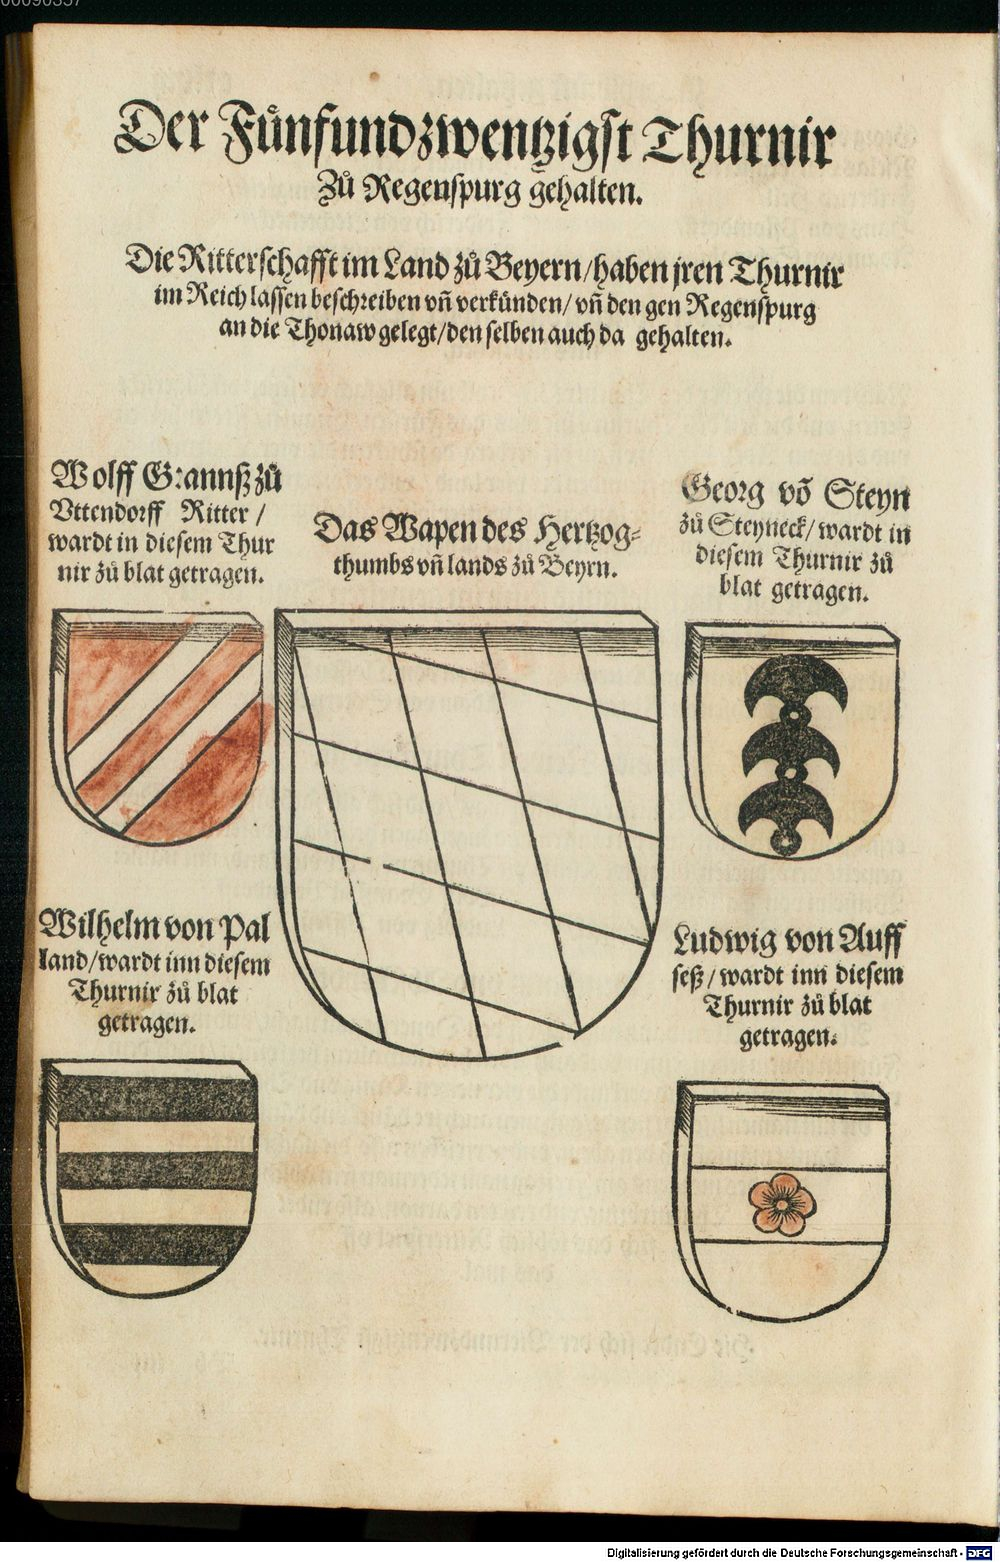 00090357
Der Fünfundzwentzigst Thurnir
Zů Regenspurg gehalten.
Die Ritterschafft im Land zů Beyern/haben jren Thurnir
im Reich lassen beschreiben vñ verkünden/ vñ den gen Regenspurg
an die Thonaw gelegt/den selben auch da gehalten.
Wolff Grannß zů
Vttendorff Ritter /
wardt in diesem Thur
nir zů blat getragen.
Das Wapen des Hertzog⸗
thumbs vñ lands zů Beyrn.
Georg võ Steyn
zů Steyneck/ wardt in
diesem Thurnir zů
blat getragen.
Wilhelm von Pal
land/wardt inn diesem
Thurnir zů blat
getragen.
Ludwig von Auff
seß/ wardt inn diesem
Thurnir zů blat
getragen.
Digitalisierung gefördert durch die Deutsche Forschungsgemeinschaft - DFG